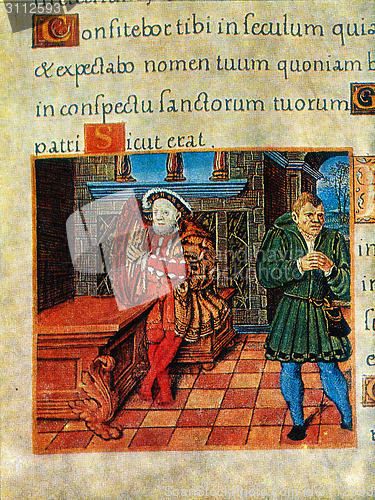 Confitebor tibi in seculum quia
& expectabo nomen tuum quoniam b
in conspectu sanctorum tuorum G
patri Sicut erat.
31125931